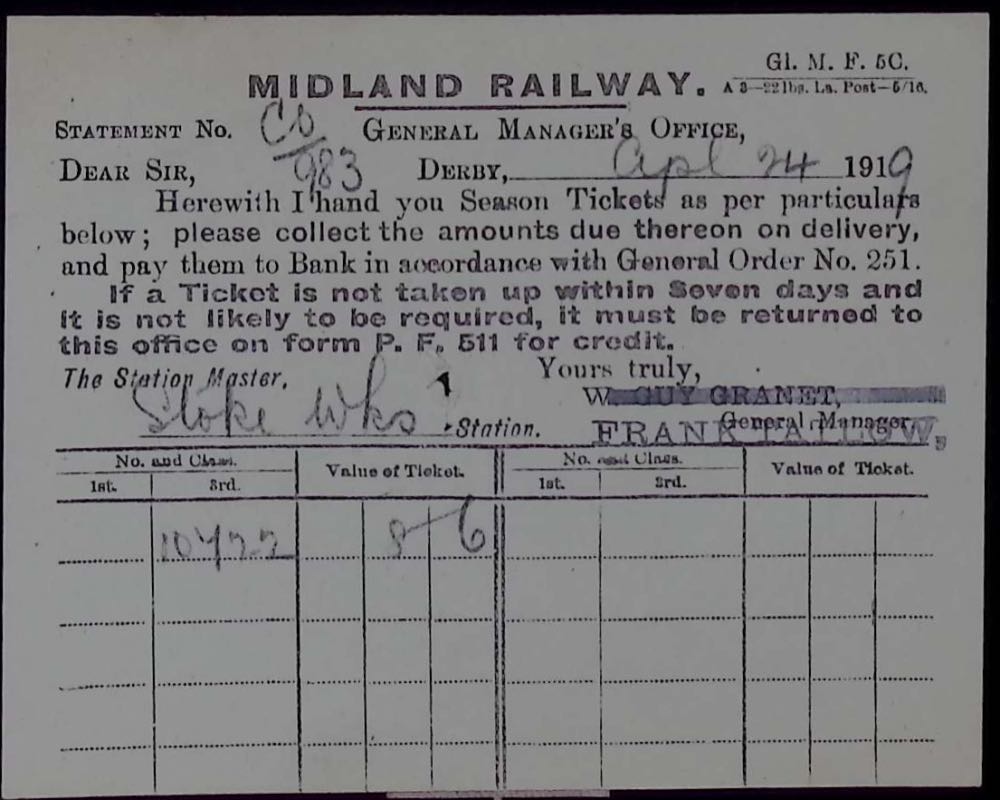 Gl. M. F. 5C.
MIDLAND RAILWAY. A 3—22lbs. La. Post—5/16.
STATEMENT No. C6/983 GENERAL MANAGER'S OFFICE,
DEAR SIR, DERBY, Apl 24 1919
Herewith I hand you Season Tickets as per particulars
below; please collect the amounts due thereon on delivery,
and pay them to Bank in accordance with General Order No. 251.
If a Ticket is not taken up within Seven days and
it is not likely to be required, it must be returned to
this office on form P. F. 511 for credit.
Yours truly,
The Station Master,
W. GUY GRANET,
Stoke Wks Station.
General Manager.
FRANK TATLOW,
No. and Class. Value of Ticket. No. and Class. Value of Ticket.
1st. 3rd. 1st. 3rd.
10477 8 6